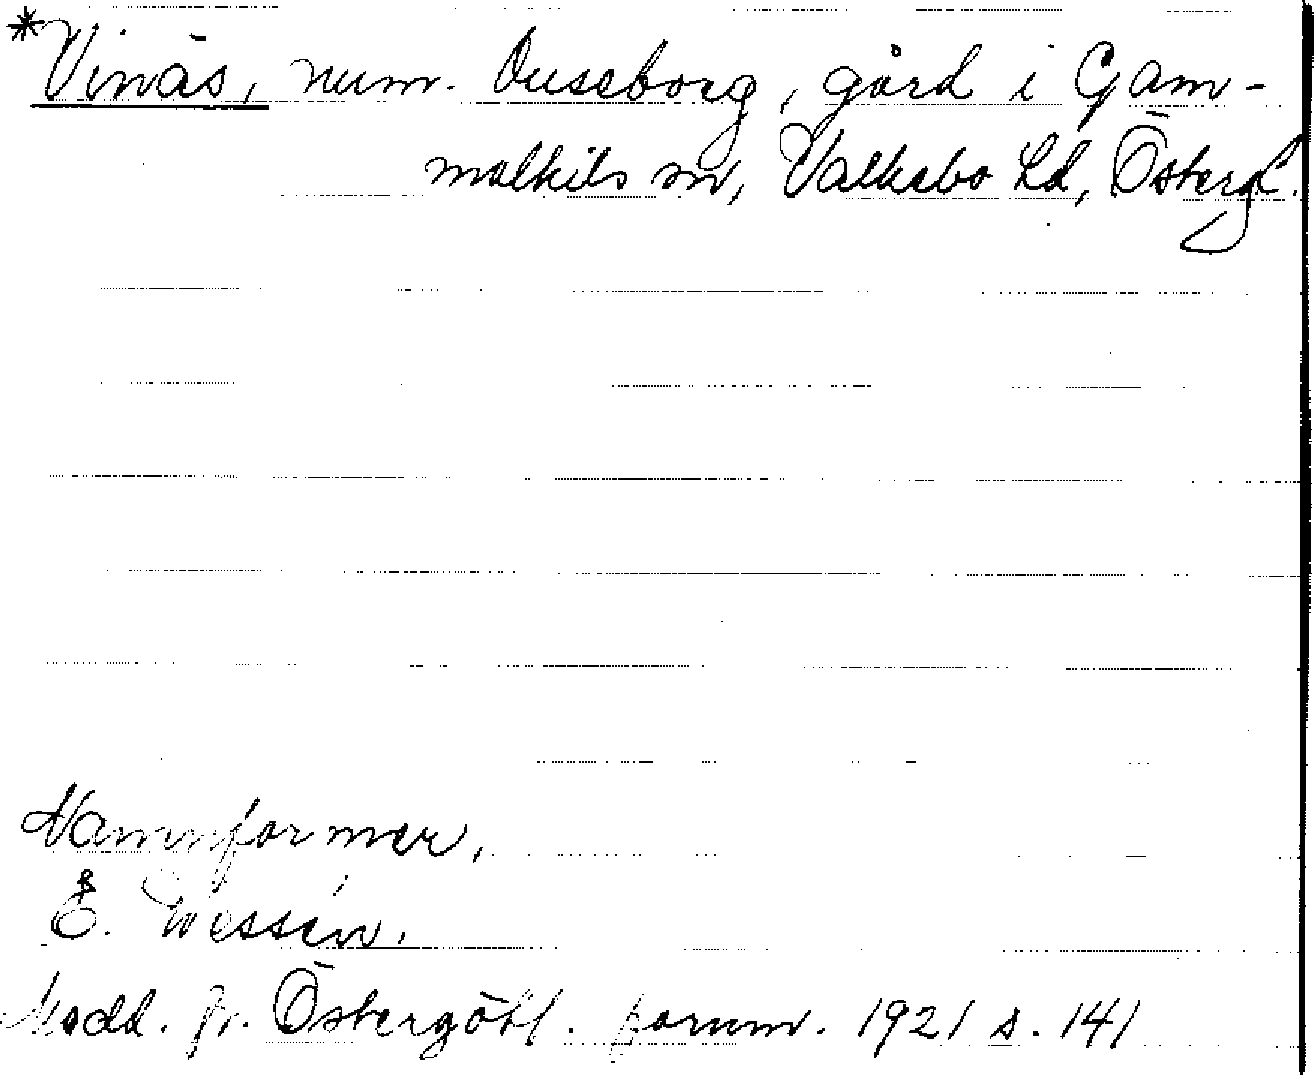 *Vinäs, num. Duseborg, gård i Gam-
malkils sn, Valkebo hd, Östergl.
Namnformer,
E. Wessén.
Medd. fr. Östergötl. fornm. 1921 s. 141